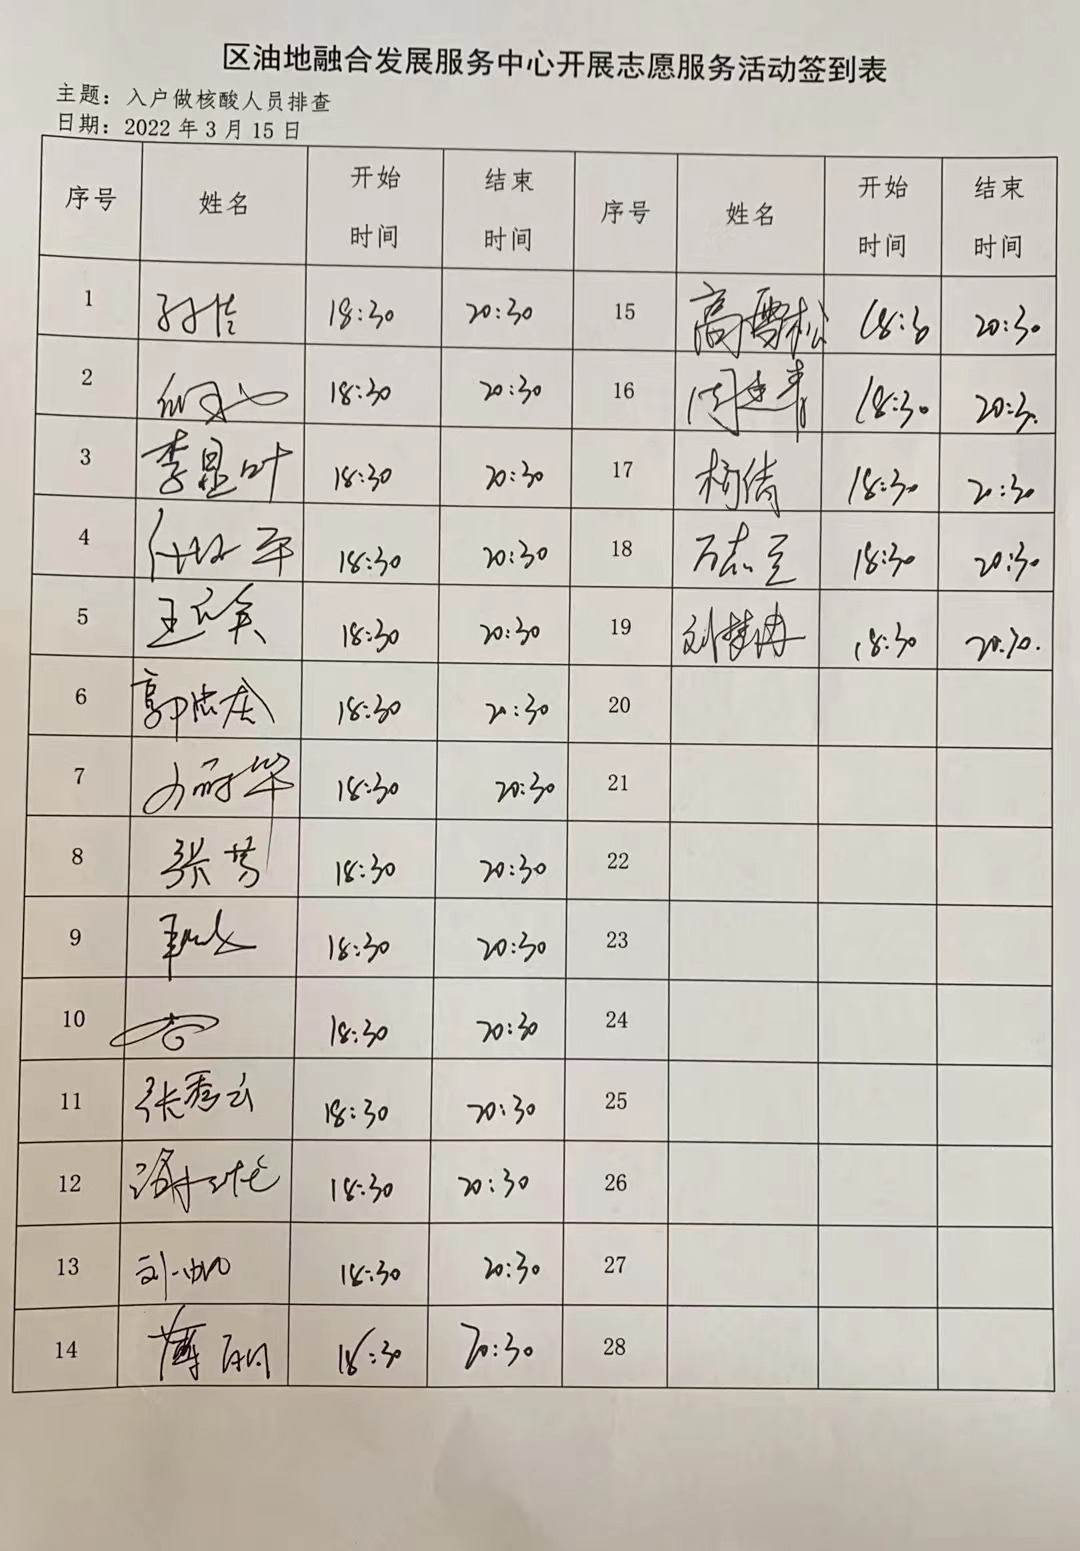 区油地融合发展服务中心开展志愿服务活动签到表
主题：入户做核酸人员排查
日期：2022 年 3 月 15 日
序号 姓名 开始时间 结束时间 序号 姓名 开始时间 结束时间
1 孙佳 18:30 20:30 15 高雪松 18:30 20:30
2 18:30 20:30 16 周建青 18:30 20:30
3 李显叶 18:30 20:30 17 杨倩 18:30 20:30
4 18:30 20:30 18 18:30 20:30
5 18:30 20:30 19 刘梦冉 18:30 20:30.
6 18:30 20:30 20
7 18:30 20:30 21
8 张芳 18:30 20:30 22
9 18:30 20:30 23
10 18:30 20:30 24
11 张秀云 18:30 20:30 25
12 18:30 20:30 26
13 刘一帆 18:30 20:30 27
14 薄丽 18:30 20:30 28